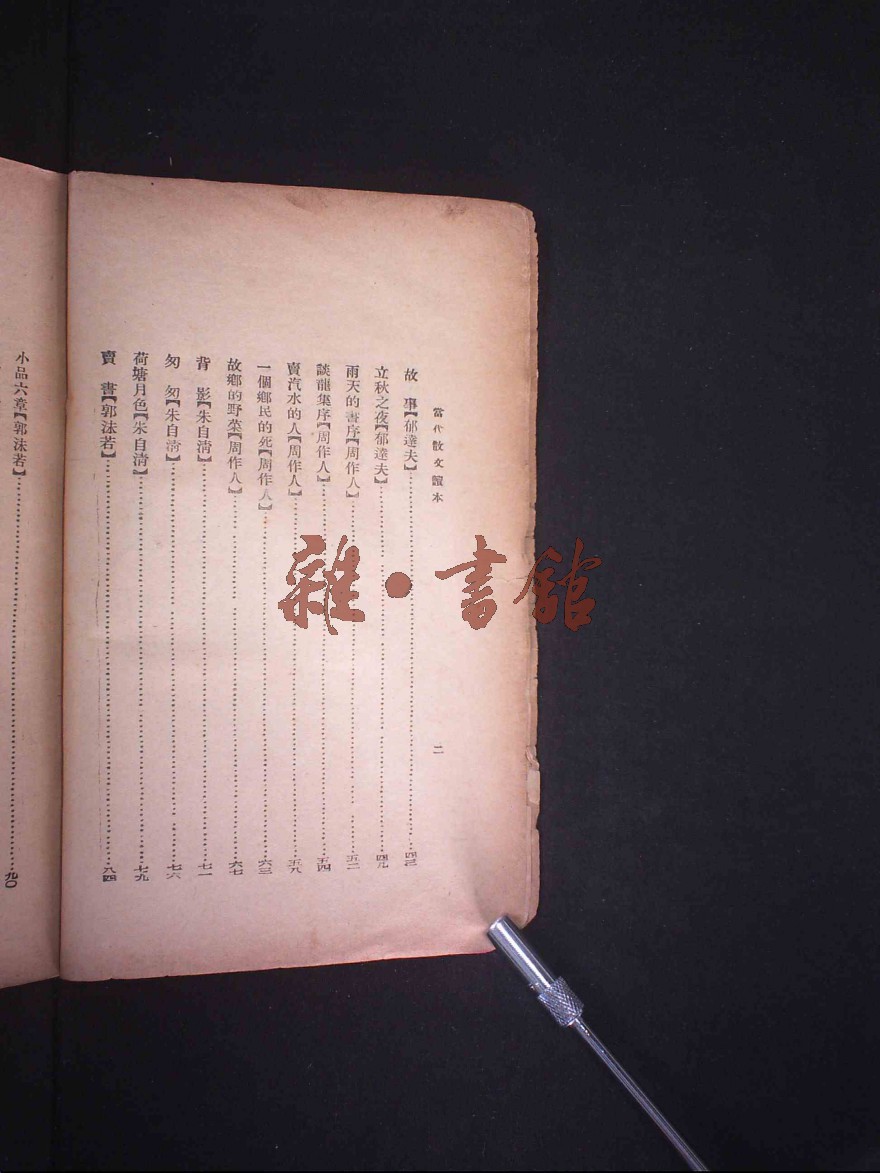 當代散文讀本
二
故事【郁達夫】……四三
立秋之夜【郁達夫】……四九
雨天的書序【周作人】……五二
談龍集序【周作人】……五四
賣汽水的人【周作人】……五八
一個鄉民的死【周作人】……六三
故鄉的野菜【周作人】……六七
背影【朱自淸】……七一
匆匆【朱自淸】……七六
荷塘月色【朱自淸】……七九
賣書【郭沫若】……八四
小品六章【郭沫若】……九〇
雜·書館